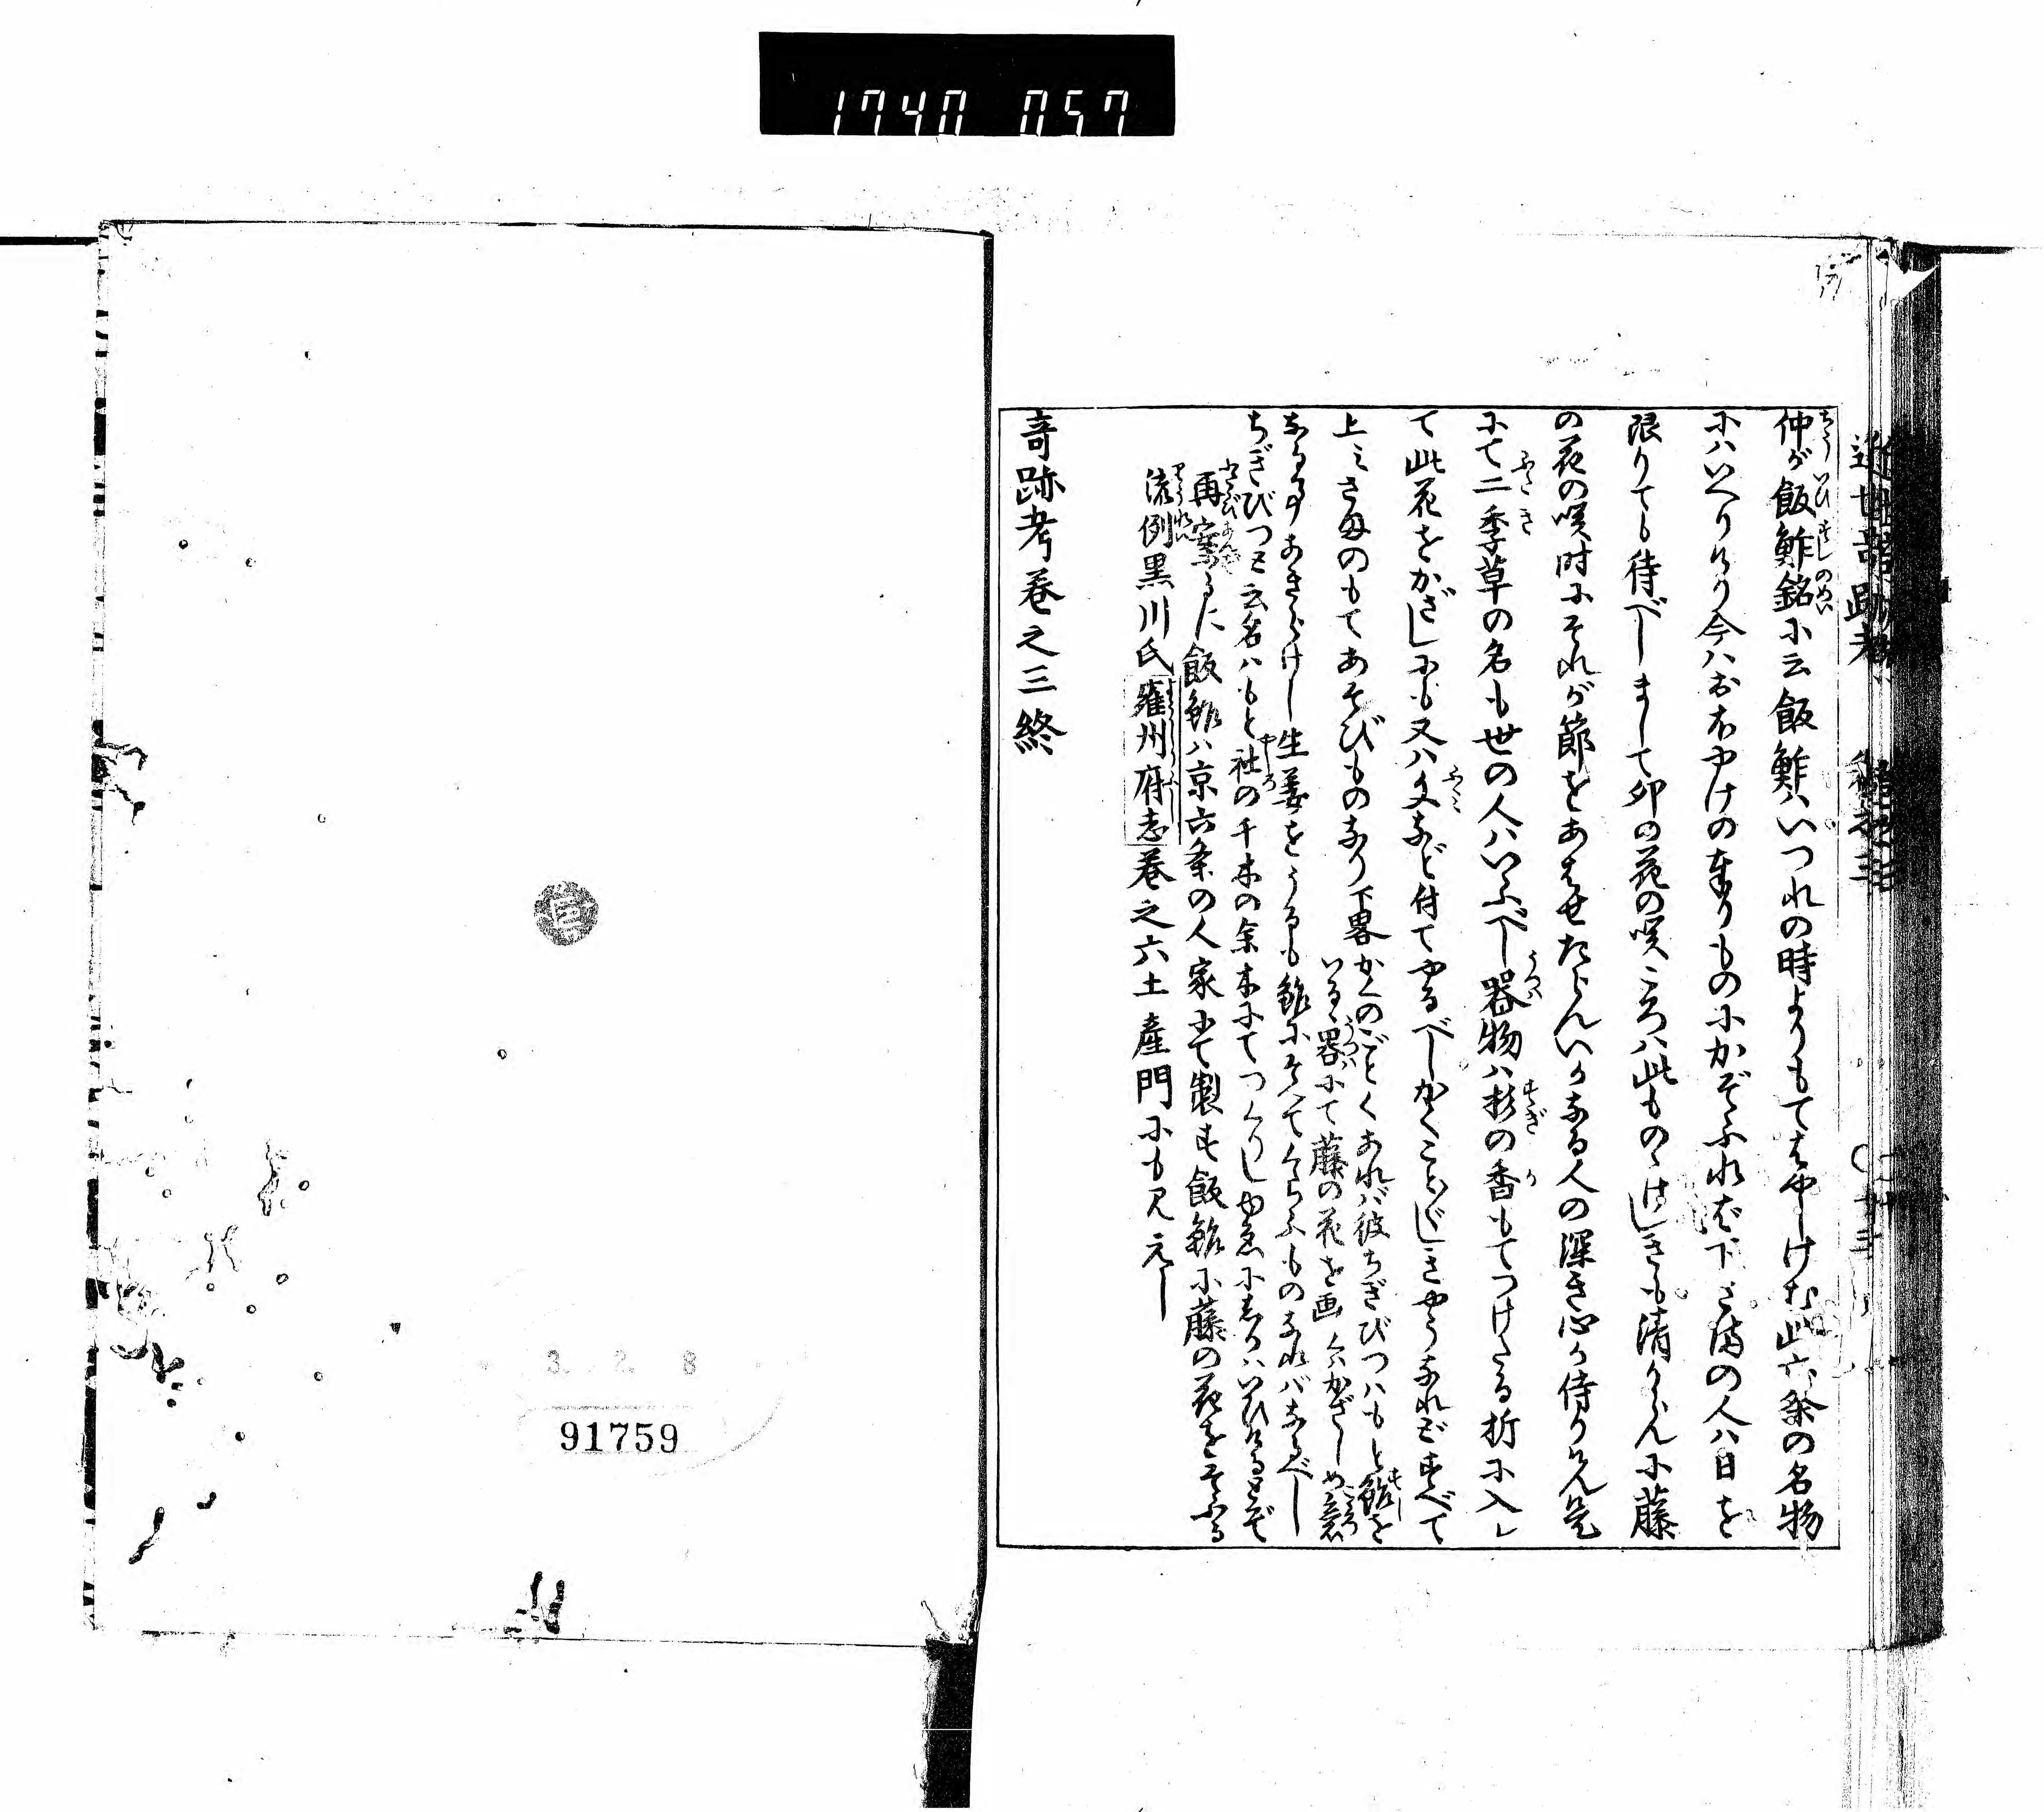 1740 057
仲が飯鮓銘に云飯鮓はいつれの時よりもてはやしけむ此六条の名物
にはいへりけり今はおほやけの奉りものにかぞふれば下ざまの人は日を
限りても待べしまして卯の花の咲ころは此ものゝけしきも清からんに藤
の花の咲時にそれが節をあはせたらんいかなる人の深き心か侍りけん是
にて二季草の名も世の人はいふべし器物は杉の香もてつけたる折に入レ
て此花をかざしにも又は文など付てやるべしかくことヾしきやうなれどすべて
上ミさまのもてあそびものなり下畧かくのごとくあれば彼ちぎびつはもと鮓を
いるゝ器にて藤の花を画くはかざしの意
なる事あきらけし生姜をうるも鮓にそへてくらふものなればなるべし
ちぎびつと云名はもと社の千木の余木にてつくりしゆゑにしかいひけるとぞ
再案るに飯鮓は京六条の人家にて製す飯鮓に藤の花をそふる
流例黒川氏雍州府志巻之六土産門にも見えし
竒跡考巻之三終
3. 2. 8
91759